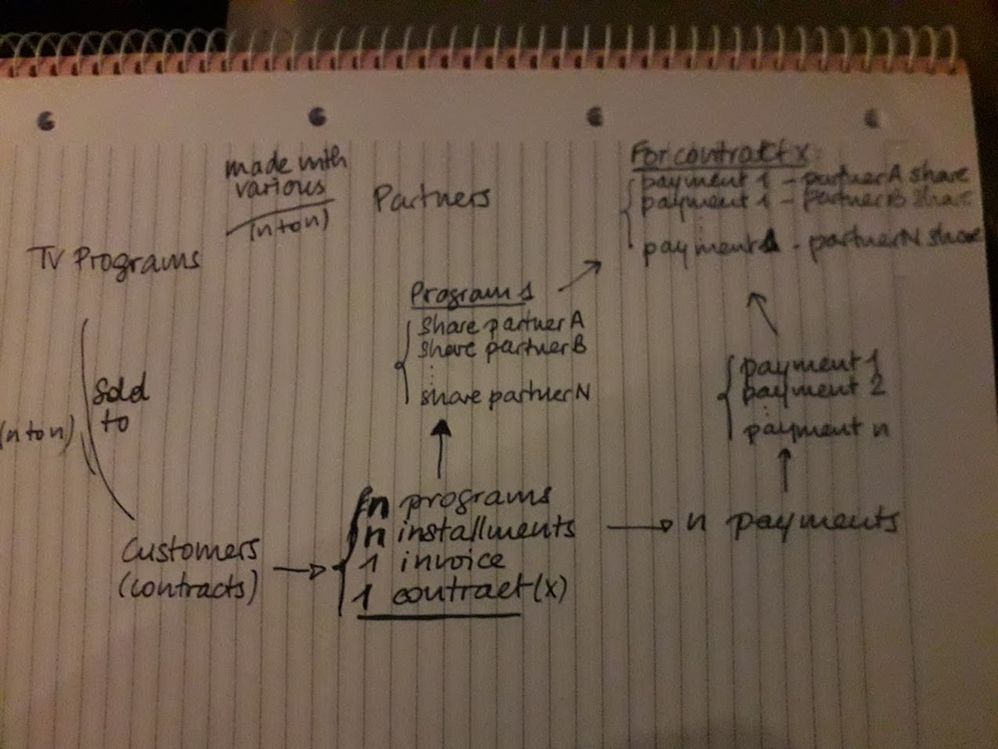 made with
various
(n to n)
Partners
TV Programs
sold
to
(n to n)
Customers
(contracts)
n programs
n installments
1 invoice
1 contract (x)
Program 1
share partner A
share partner B
share partner N
n payments
payment 1
payment 2
payment n
For contract x
payment 1 - partner A share
payment 1 - partner B share
payment 1 - partner N share